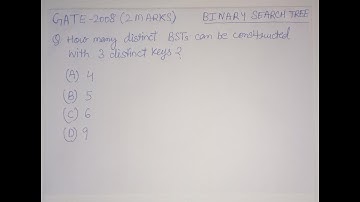 GATE-2008 (2 MARKS) BINARY SEARCH TREE
Q How many distinct BSTs can be constructed
with 3 distinct keys?
(A) 4
(B) 5
(C) 6
(D) 9